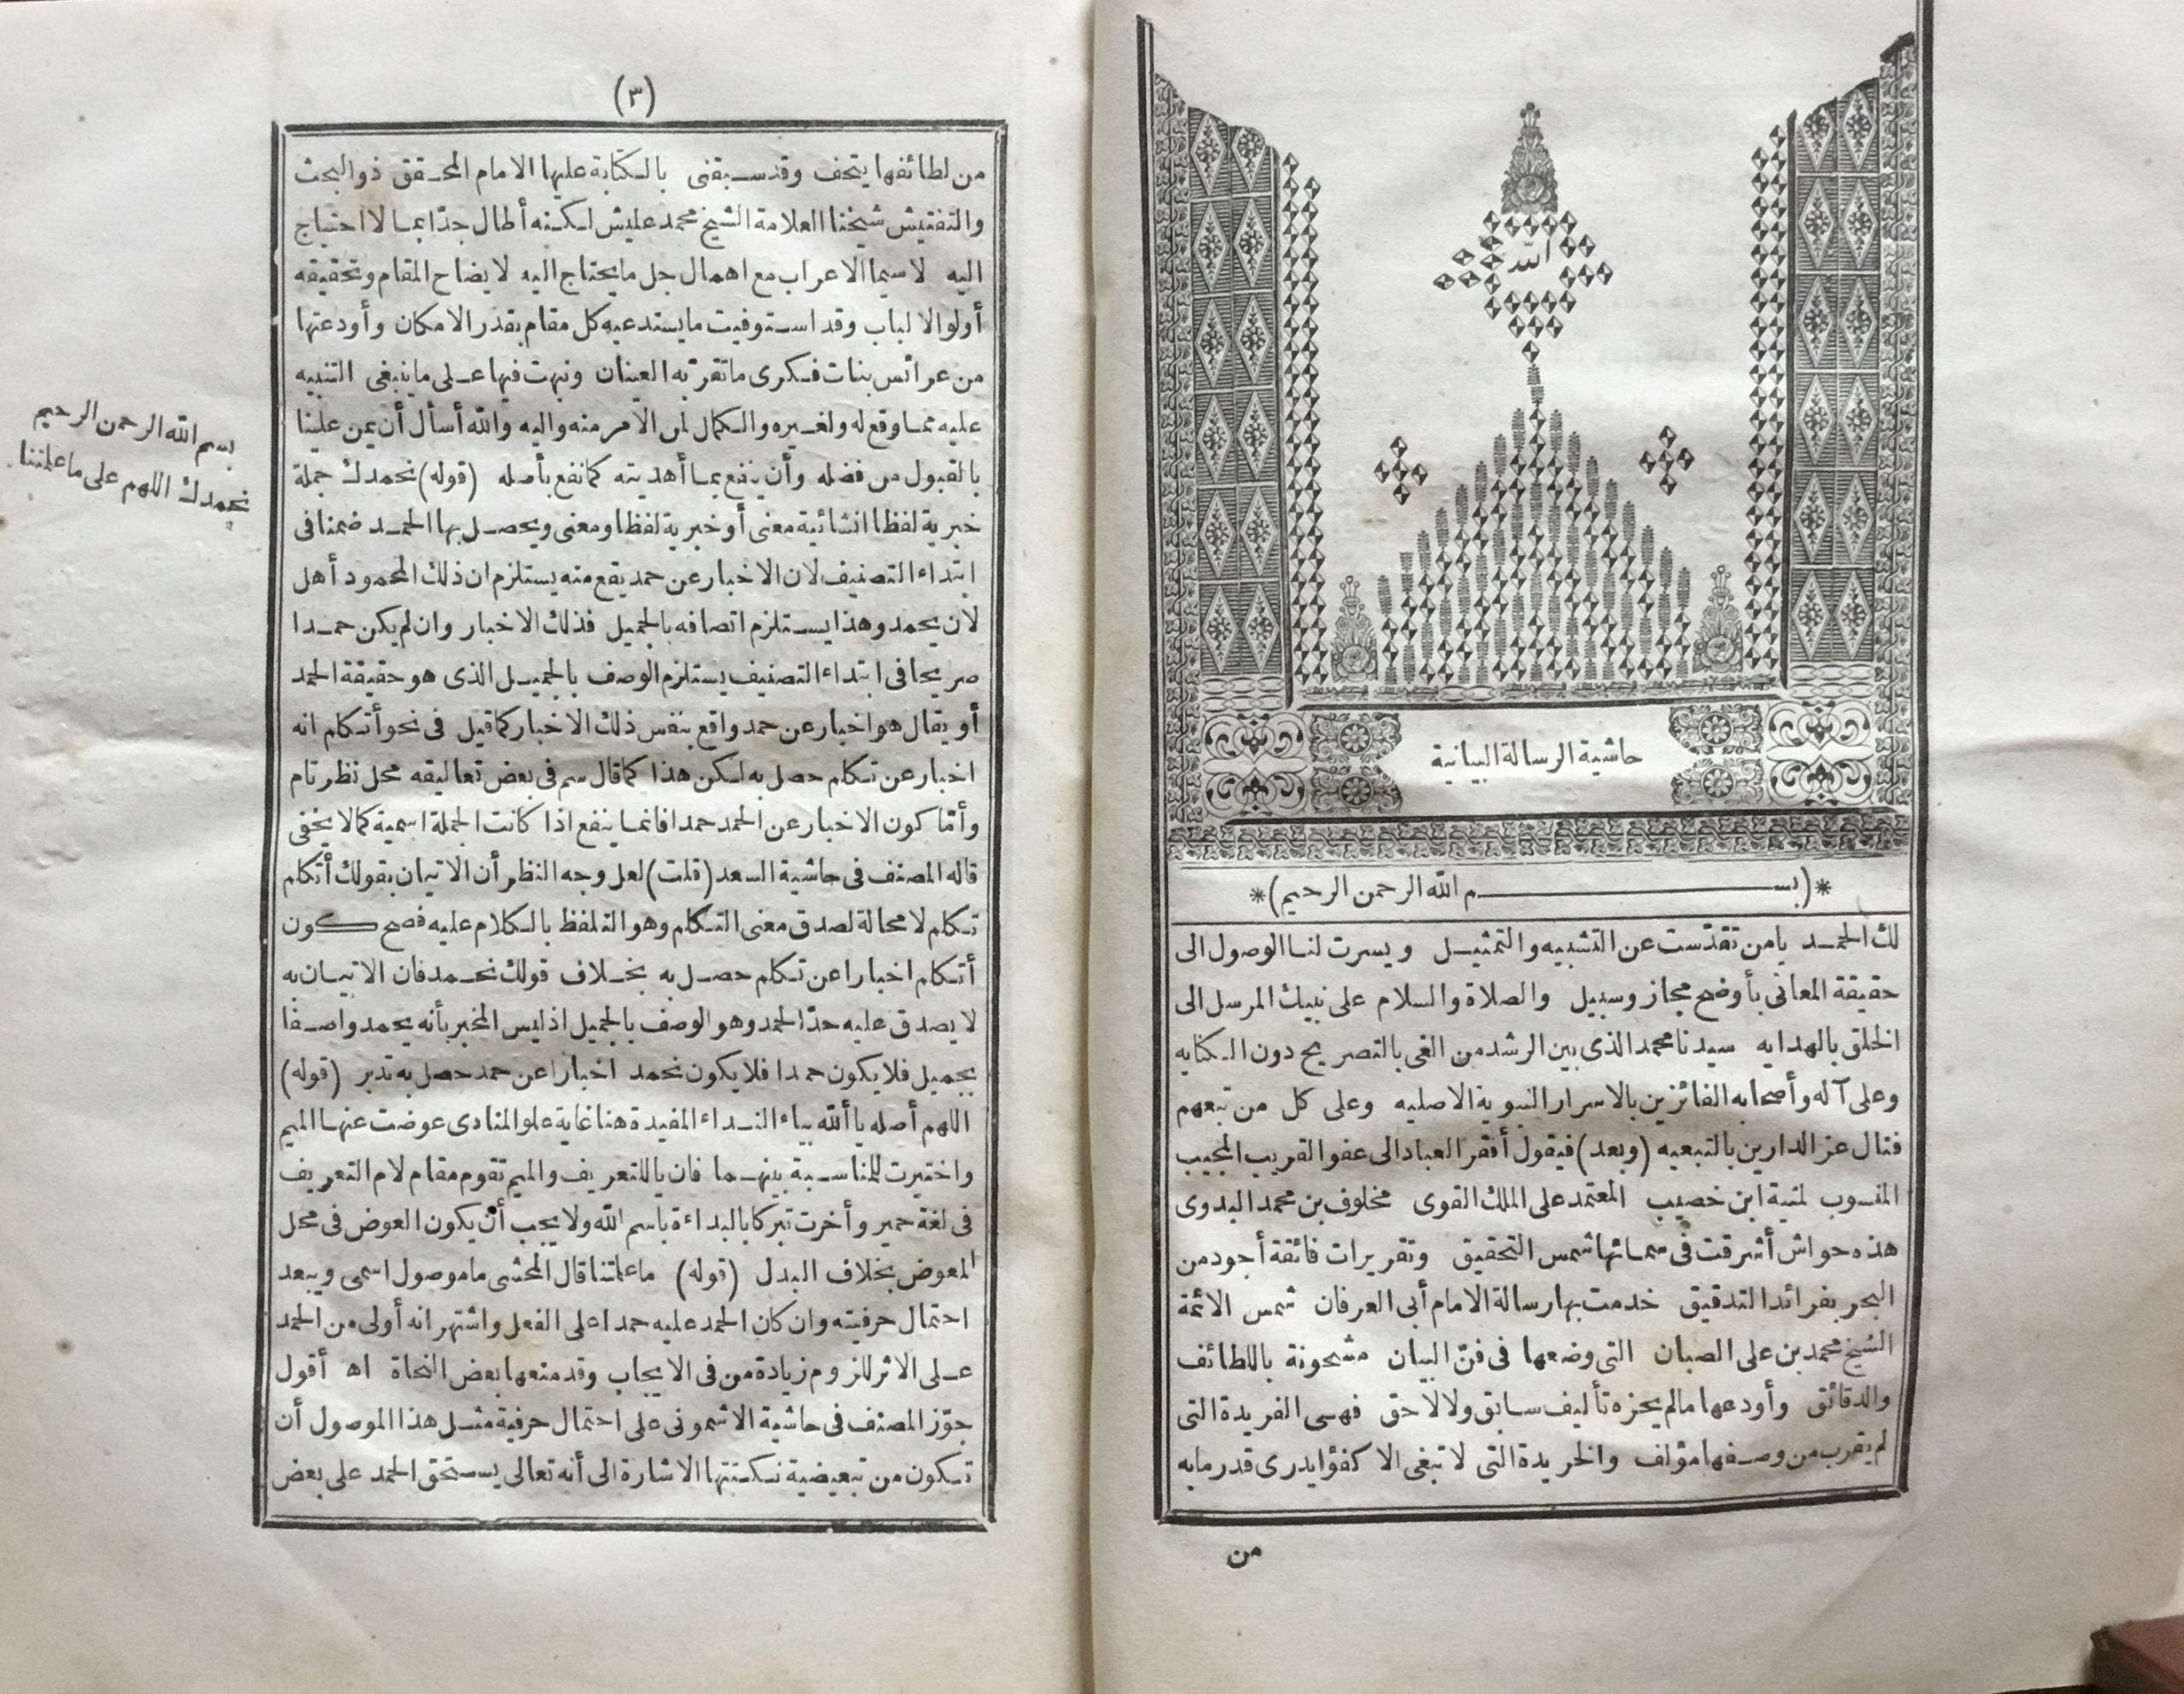 الله
حاشية الرسالة البيانية
*(بسم الله الرحمن الرحيم)*
لك الحمد يا من تقدّست عن التشبيه والتمثيل ويسرت لنا الوصول الى
حقيقة المعانى بأوضح مجاز وسبيل والصلاة والسلام على نبيك المرسل الى
الخلق بالهدايه سيدنا محمد الذى بين الرشد من الغى بالتصريح دون الكنايه
وعلى آله وأصحابه الفائزين بالاسرار النبوية الاصليه وعلى كل من تبعهم
فنال عز الدارين بالتبعيه (وبعد) فيقول أفقر العباد الى عفو القريب المجيب
المنسوب لمنية ابن خصيب المعتمد على الملك القوى مخلوف بن محمد البدوى
هذه حواش أشرقت فى سمائها شمس التحقيق وتقريرات فائقة أجود من
البحر بفرائد التدقيق خدمت بها رسالة الامام أبى العرفان شمس الائمة
الشيخ محمد بن على الصبان التى وضعها فى فنّ البيان مشحونة باللطائف
والدقائق وأودعها ما لم يحزه تأليف سابق ولا لاحق فهى الفريدة التى
لم يقرب من وصفها مؤلف والخريدة التى لا تبغى الا كفؤا يدرى قدر ما به
من
(٣)
من لطائفها يتحف وقد سبقنى بالكتابة عليها الامام المحقق ذو البحث
والتفتيش شيخنا العلامة الشيخ محمد عليش لكنه أطال جدّا بما لا احتياج
اليه لا سيما الاعراب مع اهمال جل ما يحتاج اليه لايضاح المقام وتحقيقه
أولو الالباب وقد استوفيت ما يستدعيه كل مقام بقدر الامكان وأودعتها
من عرائس بنات فكرى ما تقرّ به العينان ونبهت فيها على ما ينبغى التنبيه
عليه مما وقع له ولغيره والكمال لمن الامر منه واليه والله أسأل أن يمن علينا
بالقبول من فضله وأن ينفع بما أهديته كما نفع بأصله (قوله) نحمدك جملة
خبرية لفظا انشائية معنى أو خبرية لفظا ومعنى ويحصل بها الحمد ضمنا فى
ابتداء التصنيف لان الاخبار عن حمد يقع منه يستلزم ان ذلك المحمود أهل
لان يحمد وهذا يستلزم اتصافه بالجميل فذلك الاخبار وان لم يكن حمدا
صريحا فى ابتداء التصنيف يستلزم الوصف بالجميل الذى هو حقيقة الحمد
أو يقال هو اخبار عن حمد واقع بنفس ذلك الاخبار كما قيل فى نحو أتكلم انه
اخبار عن تكلم حصل به لكن هذا كما قال سم فى بعض تعاليقه محل نظر تام
وأمّا كون الاخبار عن الحمد حمدا فانما ينفع اذا كانت الجملة اسمية كما لا يخفى
قاله المصنف فى حاشية السعد (قلت) لعل وجه النظر أن الاتيان بقولك أتكلم
تكلم لا محالة لصدق معنى التكلم وهو التلفظ بالكلام عليه فصح كون
أتكلم اخبارا عن تكلم حصل به بخلاف قولك نحمد فان الاتيان به
لا يصدق عليه حدّ الحمد وهو الوصف بالجميل اذ ليس المخبر بأنه يحمد واصفا
بجميل فلا يكون حمدا فلا يكون نحمد اخبارا عن حمد حصل به تدبر (قوله)
اللهم أصله يا ألله بياء النداء المفيدة هنا غاية علو المنادى عوضت عنها الميم
واختيرت للمناسبة بينهما فان يا للتعريف والميم تقوم مقام لام التعريف
فى لغة حمير وأخرت تبركا بالبداءة باسم الله ولا يجب أن يكون العوض فى محل
المعوض بخلاف البدل (قوله) ما علمتنا قال المحشى ما موصول اسمى ويبعد
احتمال حرفيته وان كان الحمد عليه حمدا على الفعل واشتهر انه أولى من الحمد
على الاثر للزوم زيادة من فى الايجاب وقد منعها بعض النحاة اه أقول
جوّز المصنف فى حاشية الاشمونى على احتمال حرفية مثل هذا الموصول أن
تكون من تبعيضية نكتتها الاشارة الى أنه تعالى يستحق الحمد على بعض
بسم الله الرحمن الرحيم
نحمدك اللهم على ما علمتنا